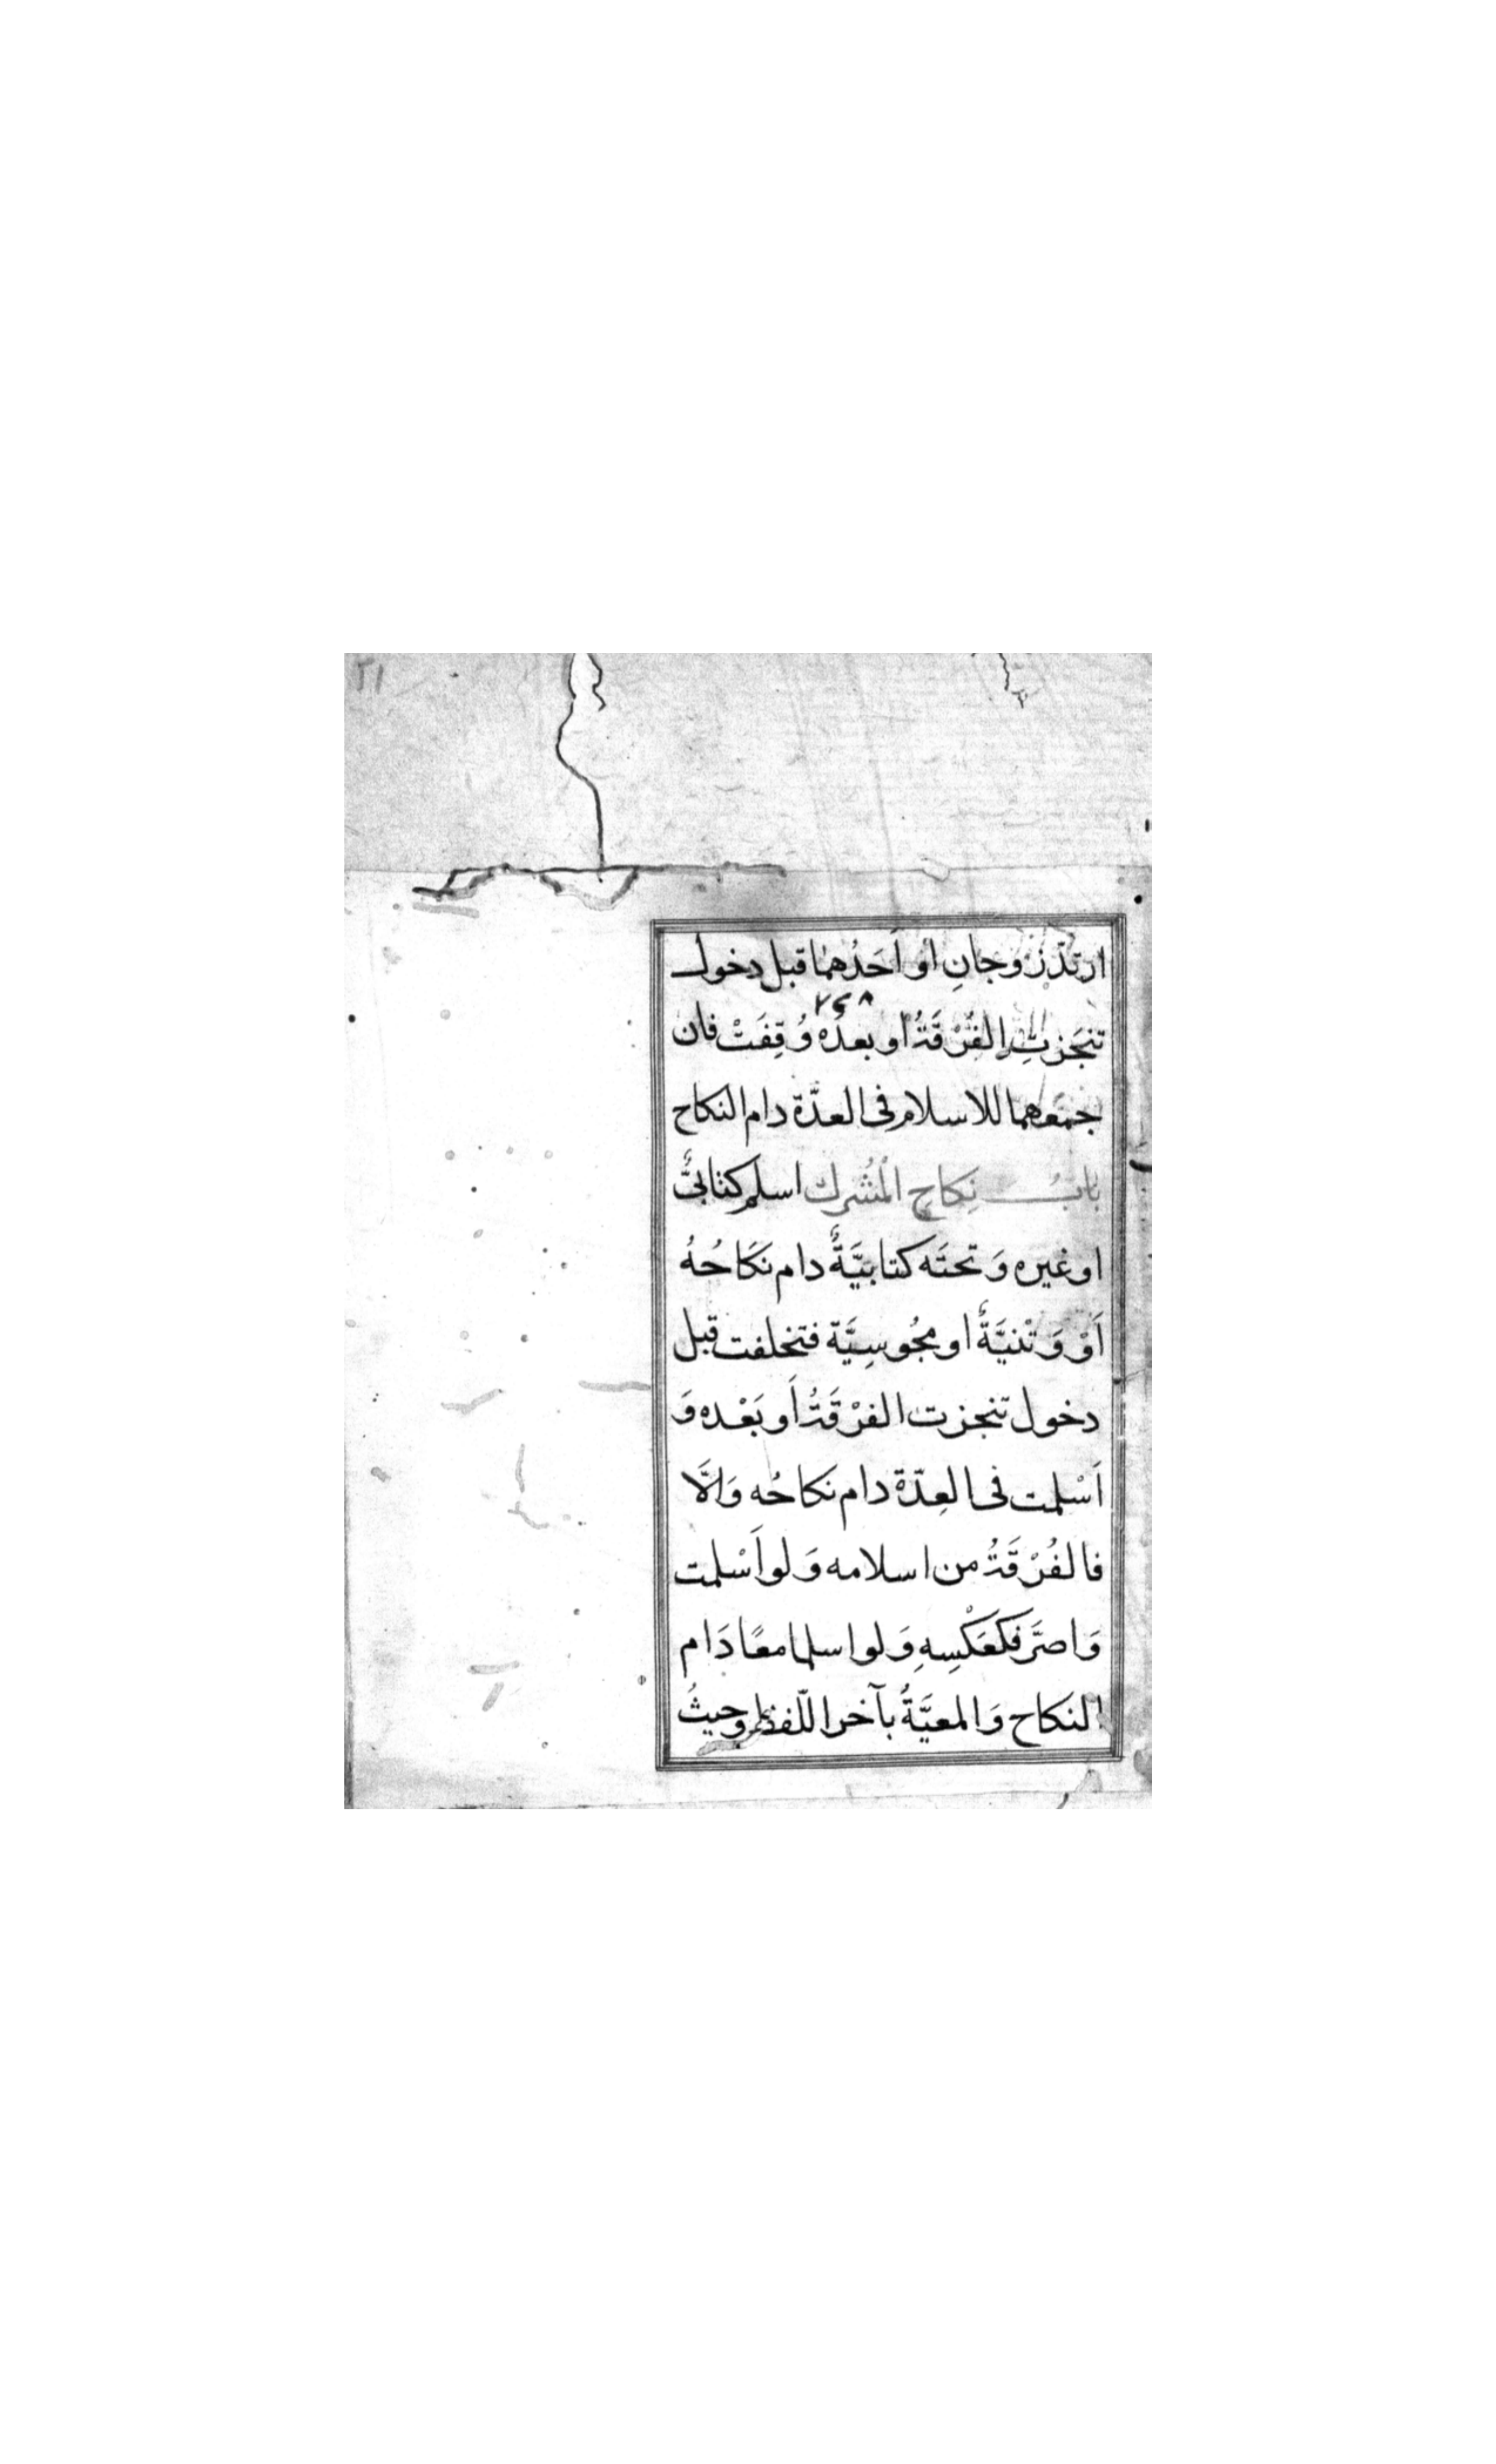 ٢١
ارتدّ زوجانِ او اَحَدُهما قبل دخول
٢٤٨
تنجَزتِ الفُرْقَةُ او بعدَهْ وُقِفَتْ فان
جمعهما للاسلام فى العدَّة دام النكاح
بابُ نِكاحِ الْمُشْرِك اسلم كتابىٌّ
او غيره وَتحتَه كتابيَّةٌ دام نكَاحُهُ
اَوْ وَثنيَّةٌ او مجُوسِيَّة فتخلفت قبل
دخول تنجزت الفرْقَةُ اَو بَعْده وَ
اَسْلمت فى العِدّة دام نكاحُه وَالَّا
فالفُرْقَةُ من اسلامه وَلو اَسْلمت
وَاصرَّ فكعَكْسِهِ وَلو اسلما معًا دَام
النكَاح وَالمعيَّةُ بآخر اللّفظ وحيثُ